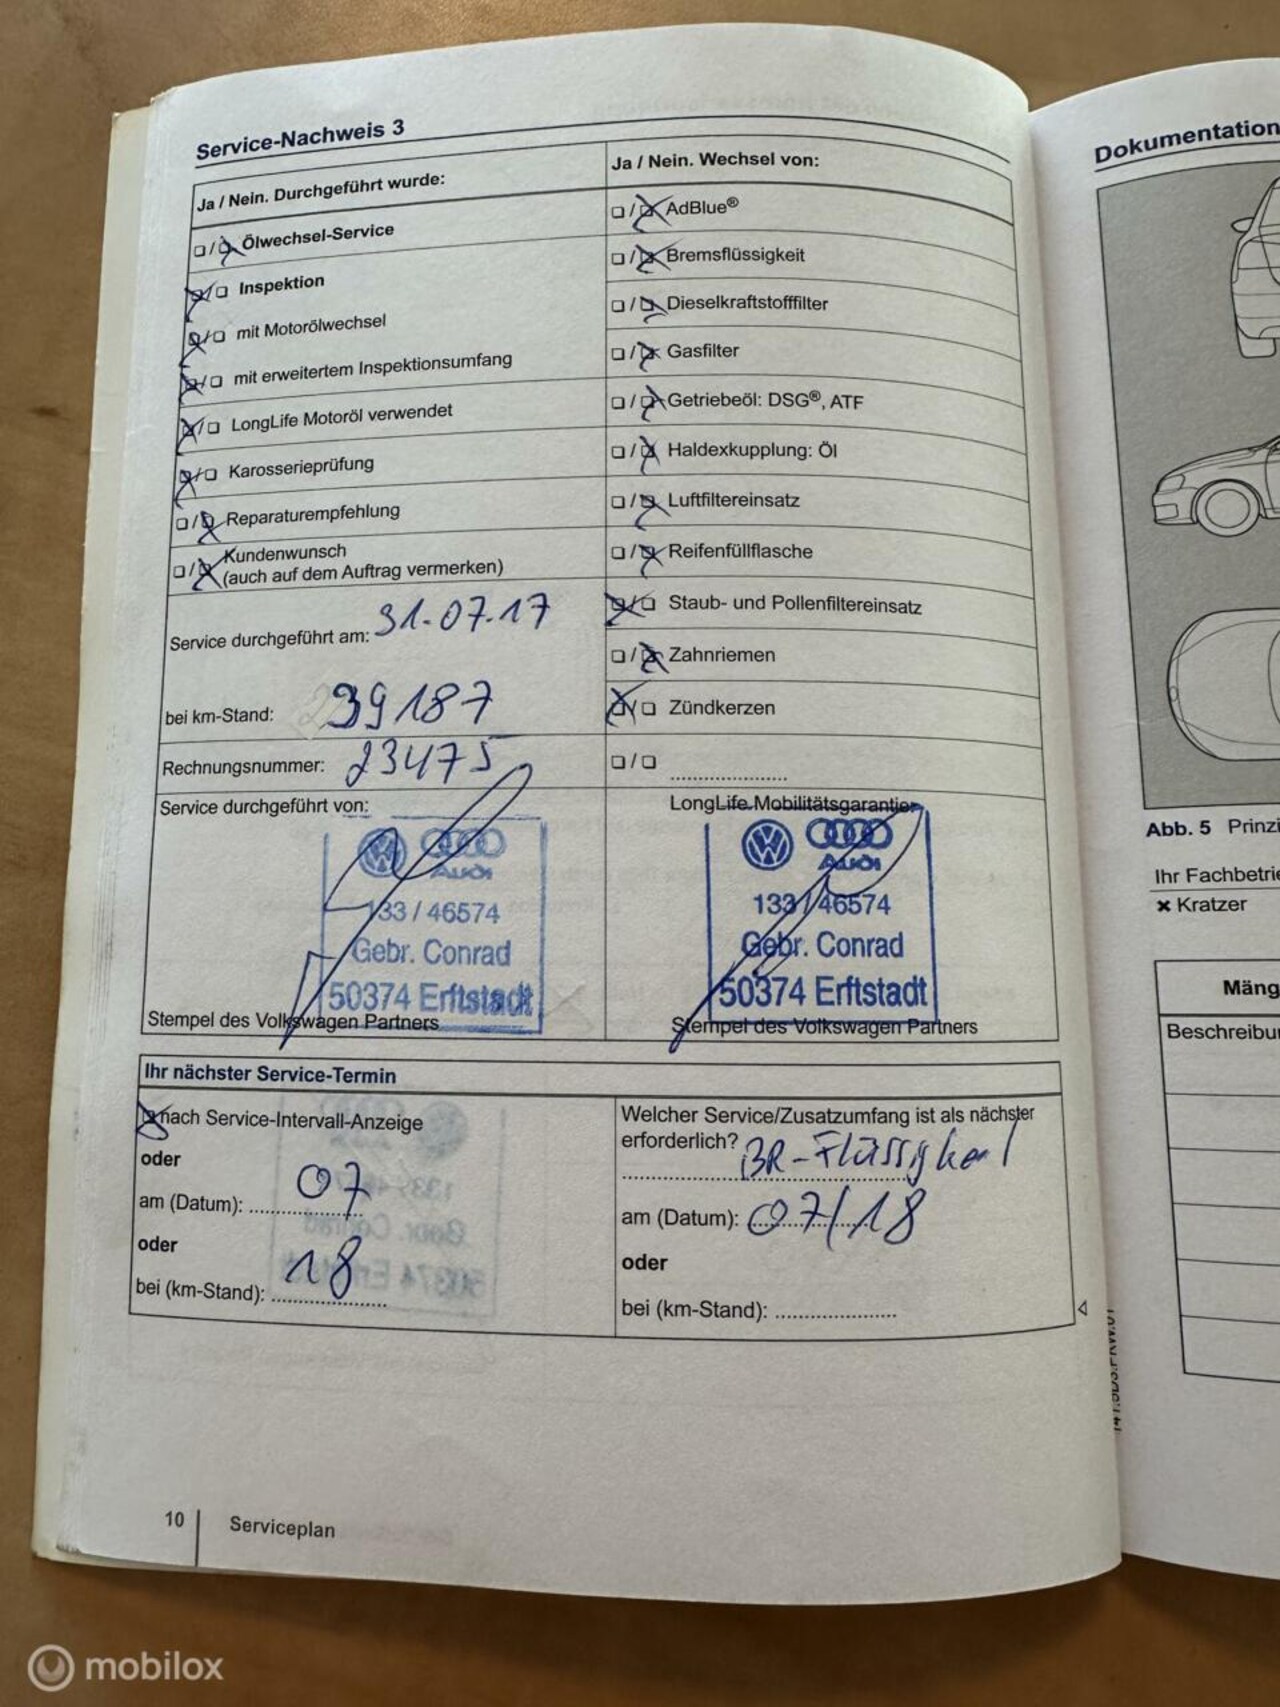 Service-Nachweis 3
Ja / Nein. Durchgeführt wurde:
Ölwechsel-Service
Inspektion
mit Motorölwechsel
mit erweitertem Inspektionsumfang
LongLife Motoröl verwendet
Karosserieprüfung
Reparaturempfehlung
Kundenwunsch
(auch auf dem Auftrag vermerken)
Service durchgeführt am: 31.07.17
bei km-Stand: 39187
Rechnungsnummer: 23475
Service durchgeführt von:
Audi
133 / 46574
Gebr. Conrad
50374 Erftstadt
Stempel des Volkswagen Partners
Ja / Nein. Wechsel von:
AdBlue®
Bremsflüssigkeit
Dieselkraftstofffilter
Gasfilter
Getriebeöl: DSG®, ATF
Haldexkupplung: Öl
Luftfiltereinsatz
Reifenfüllflasche
Staub- und Pollenfiltereinsatz
Zahnriemen
Zündkerzen
LongLife Mobilitätsgarantie
Audi
133 / 46574
Gebr. Conrad
50374 Erftstadt
Stempel des Volkswagen Partners
Ihr nächster Service-Termin
nach Service-Intervall-Anzeige
oder
am (Datum): 07
oder
bei (km-Stand): 18
Welcher Service/Zusatzumfang ist als nächster
erforderlich? BR-Flüssigkeit
am (Datum): 07/18
oder
bei (km-Stand):
10
Serviceplan
Dokumentation
Abb. 5 Prinzi
Ihr Fachbetrie
× Kratzer
Mäng
Beschreibu
mobilox